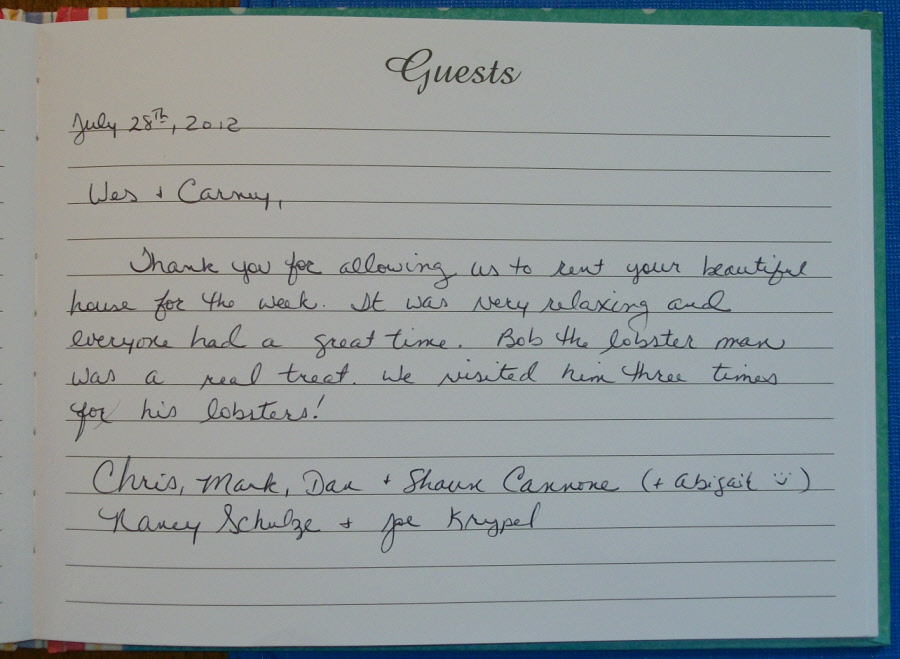 Guests
July 28Th, 2012
Wes + Carney,
Thank you for allowing us to rent your beautiful
house for the week. It was very relaxing and
everyone had a great time. Bob the lobster man
was a real treat. We visited him three times
for his lobsters!
Chris, Mark, Dan + Shaun Cannone (+ Abigail ☺)
Nancy Schulze + Joe Krypel